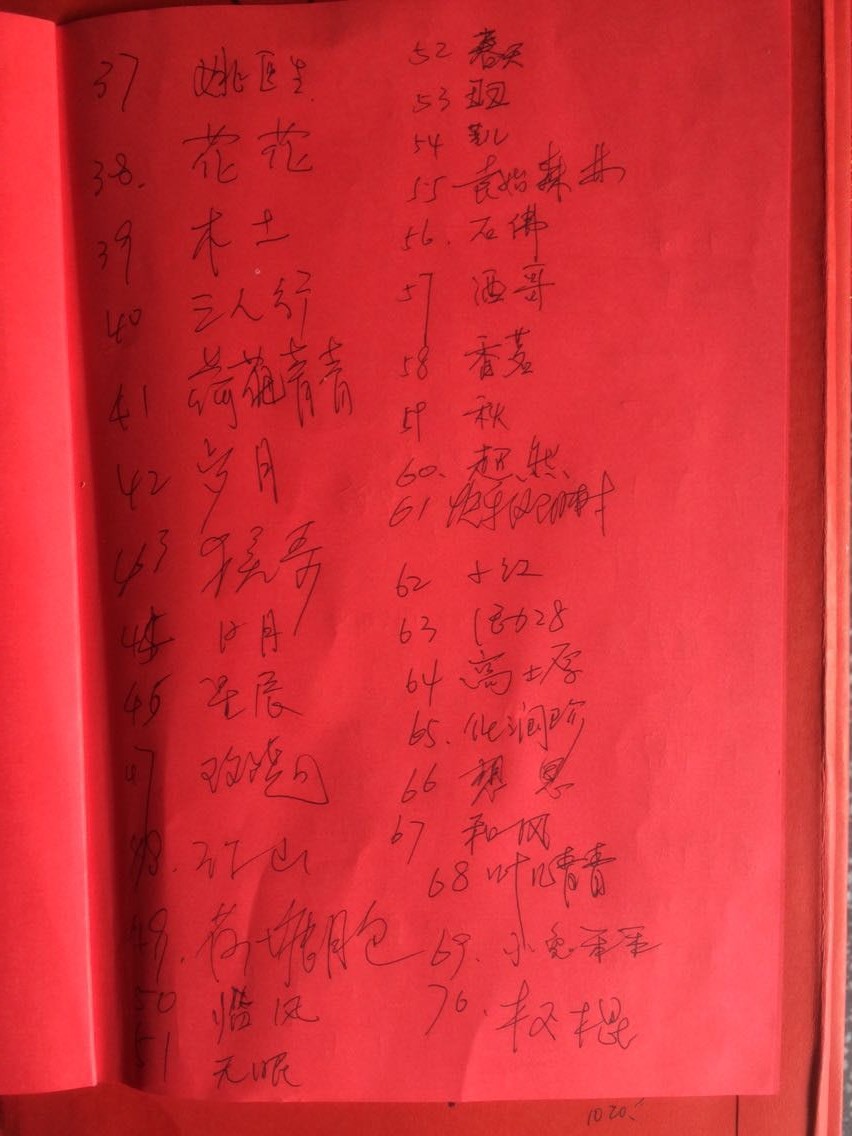 37 姚医生
38. 花花
39 木土
40 三人行
41 荷花青青
42 岁月
43 猴哥
45 日月
46 星辰
47
48. 江山
49. 荷塘月色
50 临风
51 无眠
52 春天
53
54 凯
55 袁始森林
56. 石佛
57 酒哥
58 香茗
59 秋
60. 超然
61
62 小红
63
64 高土厚
65.
66 想思
67 和风
68 叶儿青青
69. 小兔乖乖
70. 权棍
1020.